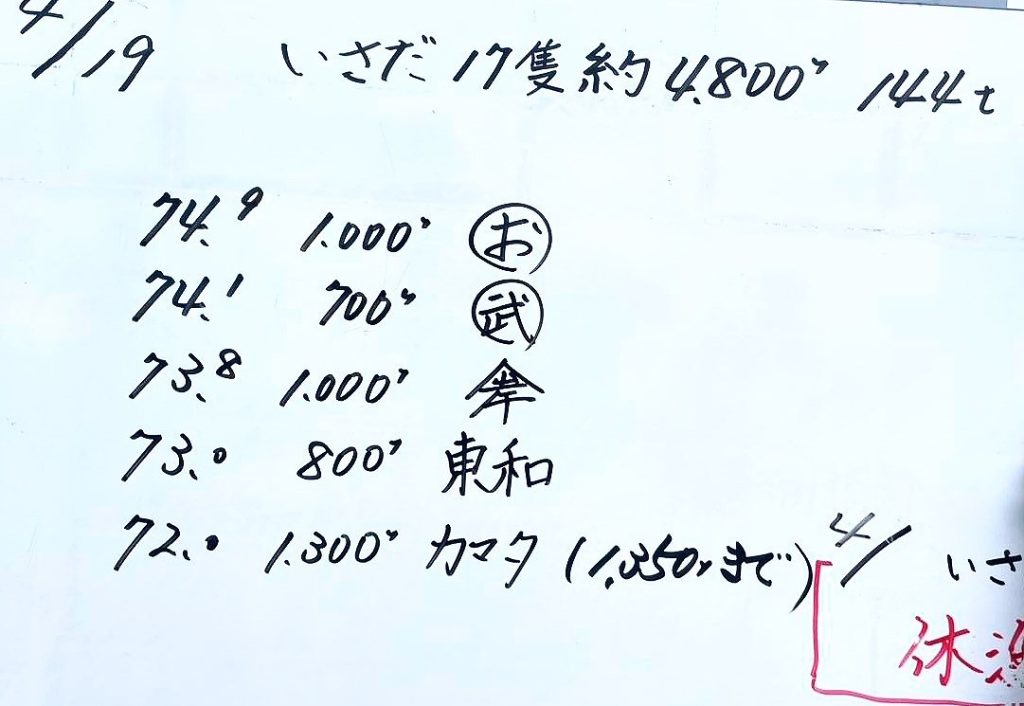 4/19 いさだ 17隻 約4.800〃 144t
74.9 1.000〃 お
74.1 700〃 武
73.8 1.000〃
73.0 800〃 東和
72.0 1.300〃 カマタ (1.350〃まで)
4/ いさ
休漁